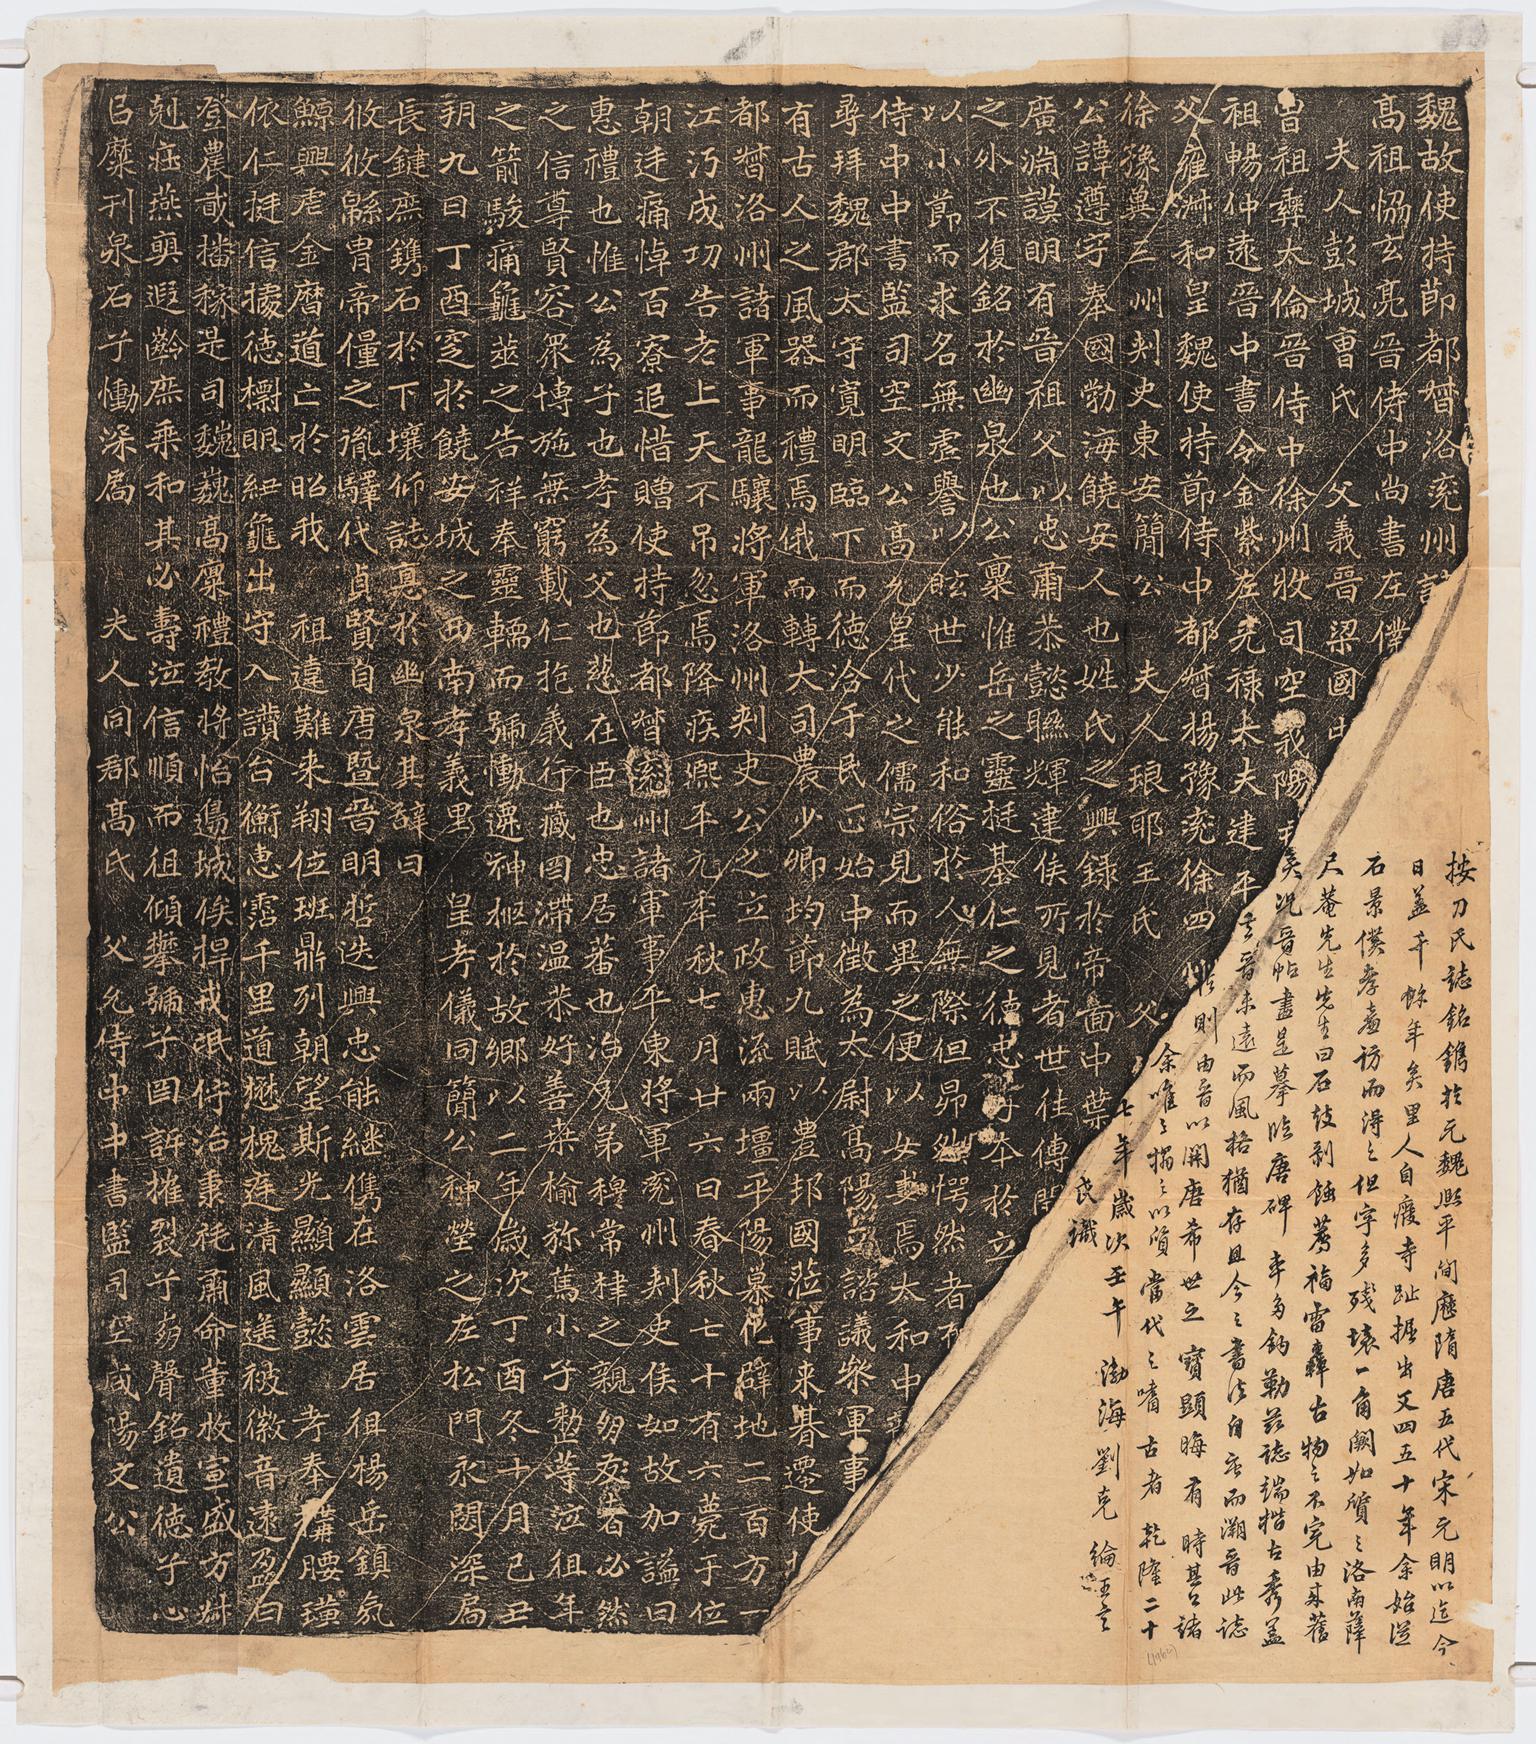 魏故使持節都督洛兗州
高祖協玄亮晉侍中尚書左僕
夫人彭城曹氏 父義晉梁國中
曾祖彝太倫晉侍中徐州牧司空義陽
祖暢仲遠晉中書令金紫左光祿大夫建平
父雍淑和皇魏使持節侍中都督揚豫兗徐四
徐豫冀三州刺史東安簡公 夫人琅耶王氏 父
公諱遵字奉國勃海饒安人也姓氏之興錄於帝畣中葉
廣淵謨明有晉祖父以忠肅恭懿聯輝建侯所見者世徃傳聞
之外不復銘於幽泉也公稟惟岳之靈挺基仁之德忠孝本於立
以小節而求名無虛譽以眩世少能和俗於人無際但昴然愕然者
侍中中書監司空文公高允皇代之儒宗見而異之便以女妻焉太和中
尋拜魏郡太守寬明臨下而德洽于民正始中徵為太尉高陽王諮議參軍事
有古人之風器而禮焉俄而轉大司農少卿均節九賦以豊邦國蒞事未朞遷使
都督洛州諸軍事龍驤將軍洛州刺史公之立政惠流兩壃平陽慕化辟地二百方一
江沔成功告老上天不弔忽焉降疾熙平元年秋七月廿六日春秋七十有六薨于位
朝廷痛悼百寮追惜贈使持節都督兗州諸軍事平東將軍兗州刺史侯如故加謚曰
惠禮也惟公為子也孝為父也慈在臣也忠居蕃也治兄弟穆常棣之親朋友著必然
之信尊賢容眾博施無窮載仁抱義行藏罔滯温恭好善桒榆弥篤小子整等泣徂年
之箭駿痛龜莁之告祥奉靈轜而號慟遷神柩於故鄉以二年歲次丁酉冬十月己丑
朔九日丁酉窆於饒安城之西南孝義里 皇考儀同簡公神塋之左松門永閟深扃
長鍵庶鐫石於下壤仰誌真於幽泉其辭曰
攸攸綿胄帝僵之胤驛代貞賢自唐暨晉明哲迭興忠能継儁在洛雲居徂楊岳鎮氛
鯨興虐金曆道亡於昭我 祖違難来翔位班鼎列朝望斯光顯顯懿 考奉 腰璜
依仁挺信據德懰明紐龜出守入讚台衡恵霑千里道懋槐庭清風逺被徽音遠盈曰
登農祓播稼是司巍巍高廩禮教將怡邊城俟捍戎氓佇治秉旄肅命董牧宣威方
尅疪燕奭遐齡庶乘和其必壽泣信順而徂傾攀號子罔訴摧裂予朂聲銘遺德子心
㠯糜刊泉石予慟㴱扃 夫人同郡高氏 父允侍中中書監司空咸陽文公
按刀氏誌銘鐫扵元魏熙平間歷隋唐五代宋元明以迄今
日蓋千餘年矣里人自廢寺趾掘出又四五十年余始從
石景僕孝廉訪而得之但字多殘壞一角闕如質之洛南薛
尺菴先生先生曰石鼓剥蝕薦福雷轟古物之不完由来舊
矣況晉帖盡是摹臨唐碑率多鈎勒茲誌端楷古秀蓋
去晉未遠而風格猶存且今之書法自唐而溯晉此誌
則由晉以開唐希世之寳顯晦有時其公諸
余唯之搨之以質當代之嗜古者 乾隆二十
七年歲次壬午 渤海劉克綸王言
氏識